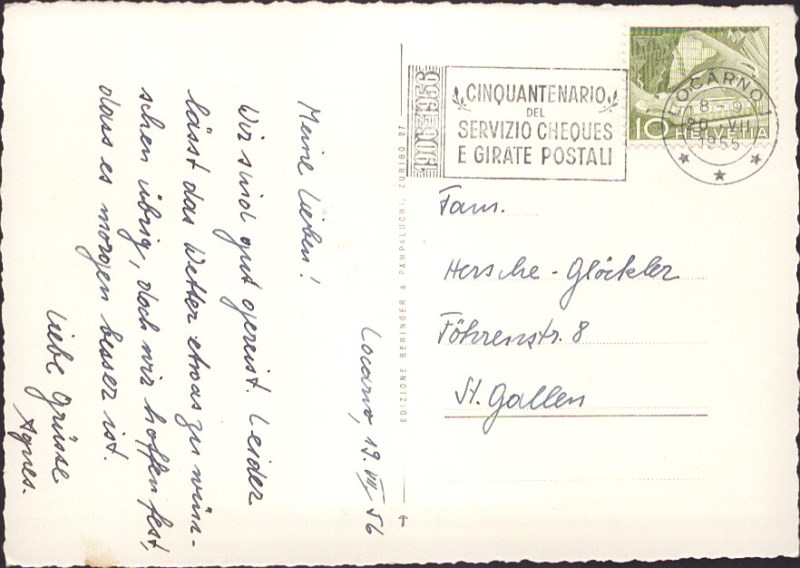 Locarno, 19. VII 56
Meine Lieben!
Wir sind gut gereist. Leider
lässt das Wetter etwas zu wün-
schen übrig, doch wir hoffen fest,
dass es morgen besser ist.
Liebe Grüsse
Agnes.
EDIZIONE BERINGER & PAMPALUCHI, ZURIGO 27
1906-1956
CINQUANTENARIO
DEL
SERVIZIO CHEQUES
E GIRATE POSTALI
LOCARNO
8-9
20. VII
1956
10 HELVETIA
Fam.
Hersche-Glöckler
Föhrenstr. 8
St. Gallen